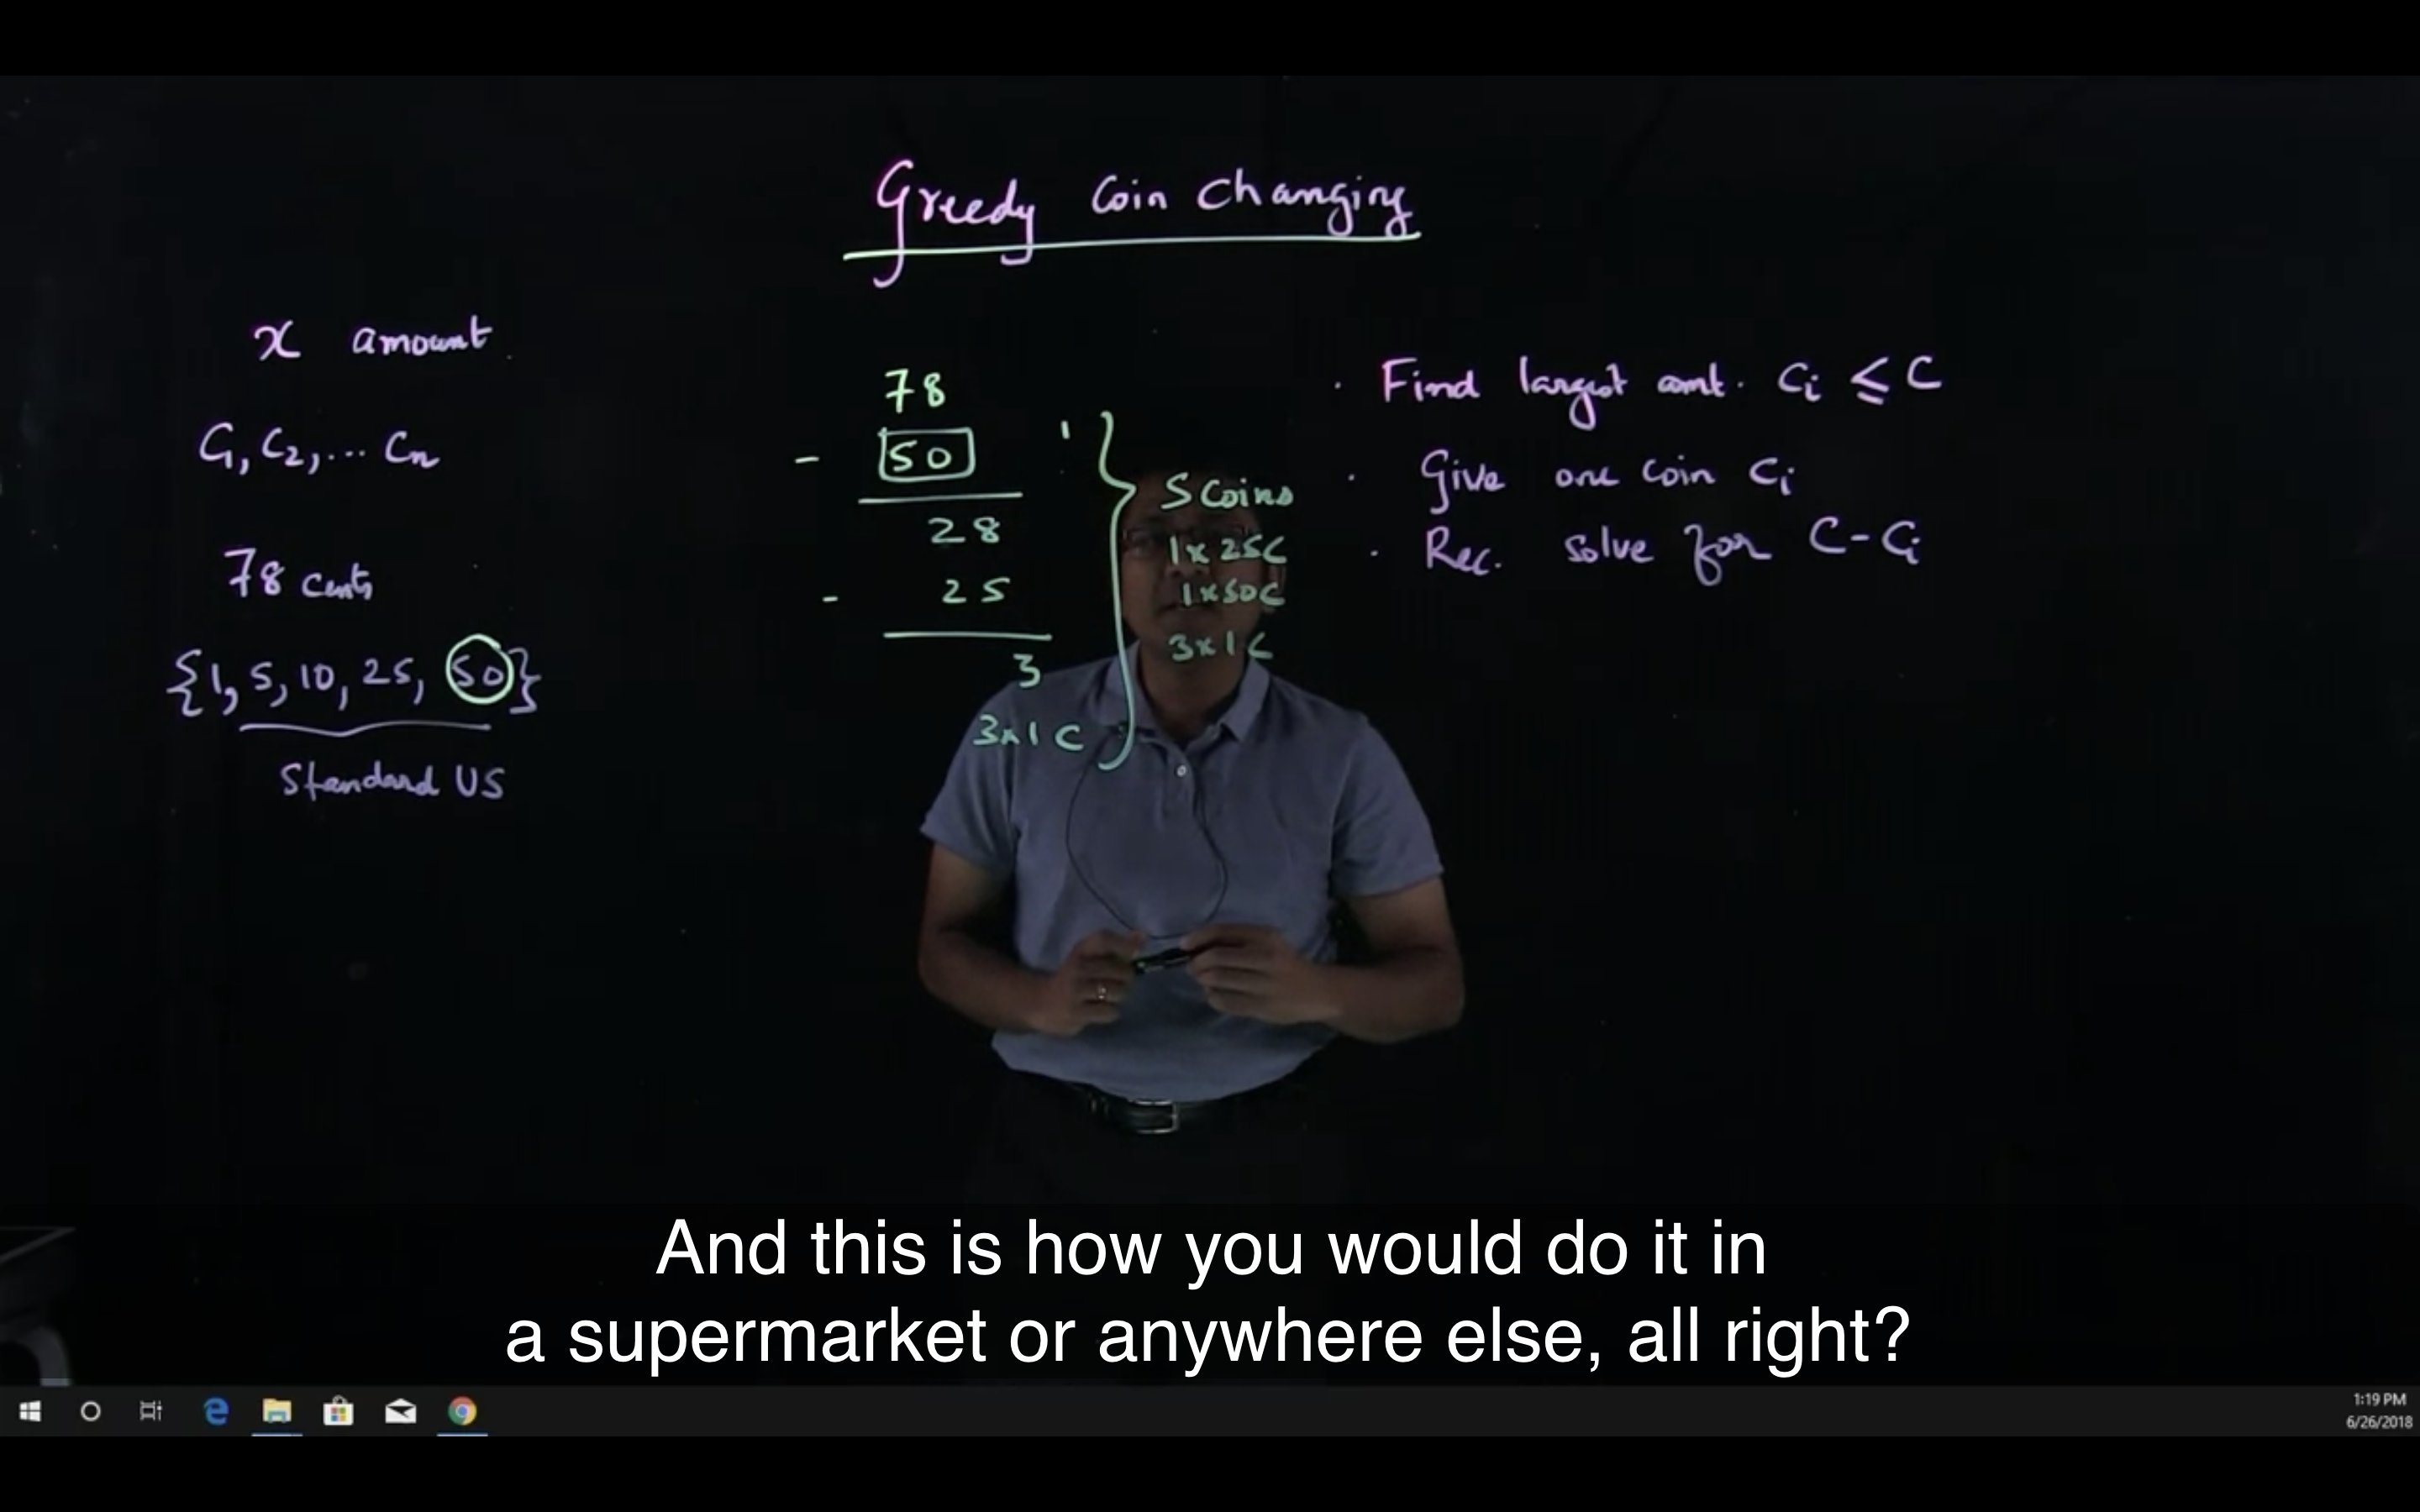 Greedy Coin Changing
x amount
C1, C2, ... Cn
78 cents
{1, 5, 10, 25, 50}
Standard US
78
- 50
28
- 25
3
3x1C
5 Coins
1x25C
1x50C
3x1C
· Find largest amt. Ci ≤ C
· Give one coin Ci
· Rec. solve for C-Ci
And this is how you would do it in
a supermarket or anywhere else, all right?
1:19 PM
6/26/2018